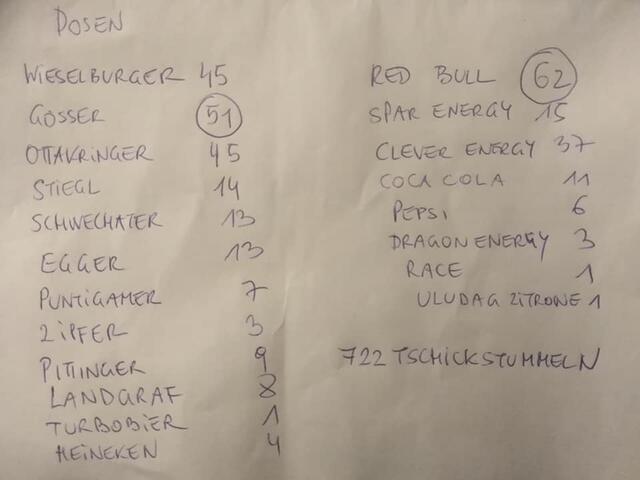 DOSEN
WIESELBURGER 45
GÖSSER 51
OTTAKRINGER 45
STIEGL 14
SCHWECHATER 13
EGGER 13
PUNTIGAMER 7
ZIPFER 3
PITTINGER 9
LANDGRAF 8
TURBOBIER 1
HEINEKEN 4
RED BULL 62
SPAR ENERGY 15
CLEVER ENERGY 37
COCA COLA 11
PEPSI 6
DRAGON ENERGY 3
RACE 1
ULUDAG ZITRONE 1
722 TSCHICKSTUMMELN